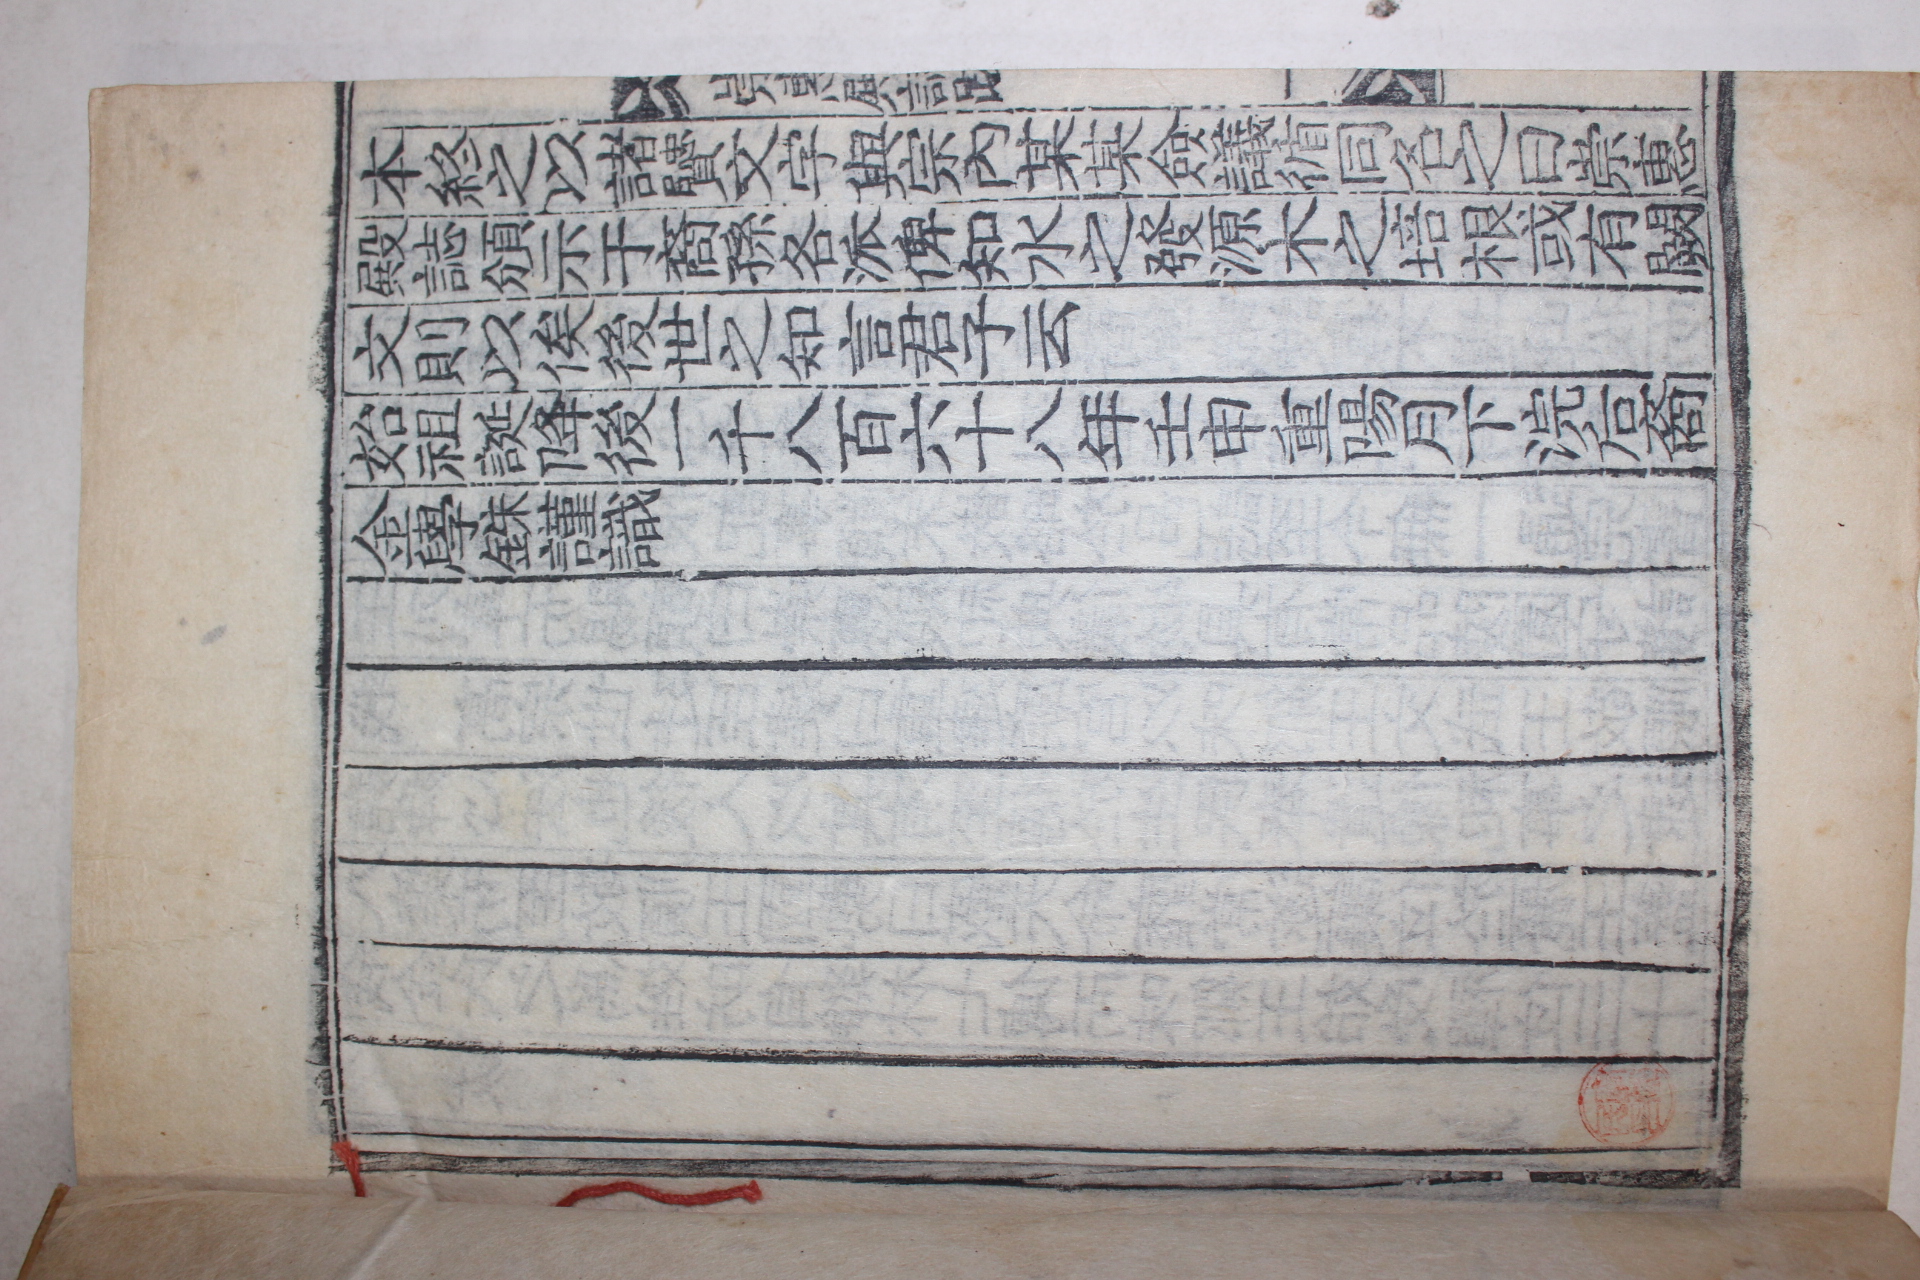 本終之以諸賢文字與宗內某某僉議循同名之曰崇惠
殿誌頒示于裔孫各派俾知水之發源木之培根或有闕
文則以俟後世之知言君子云
始祖誕降後一千八百六十八年壬申重陽月下浣后裔
金學銖謹識
崇惠殿誌跋